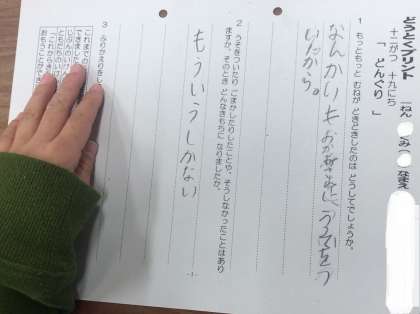 どうとくプリント 一ねん くみ なまえ
十二がつ 十九にち
「 どんぐり 」
1 もっともっと むねが どきどきしたのは どうしてでしょうか。
なんかいも おかあさんに うそをつ
いたから。
2 うそをついたり ごまかしたりしたことや、そうしなかったことはあり
ますか。そのとき どんなきもちに なりましたか。
もういうしかない
3 ふりかえりをし
これまでの
できました
ともだちの
「これから
おもうことができ
-1-